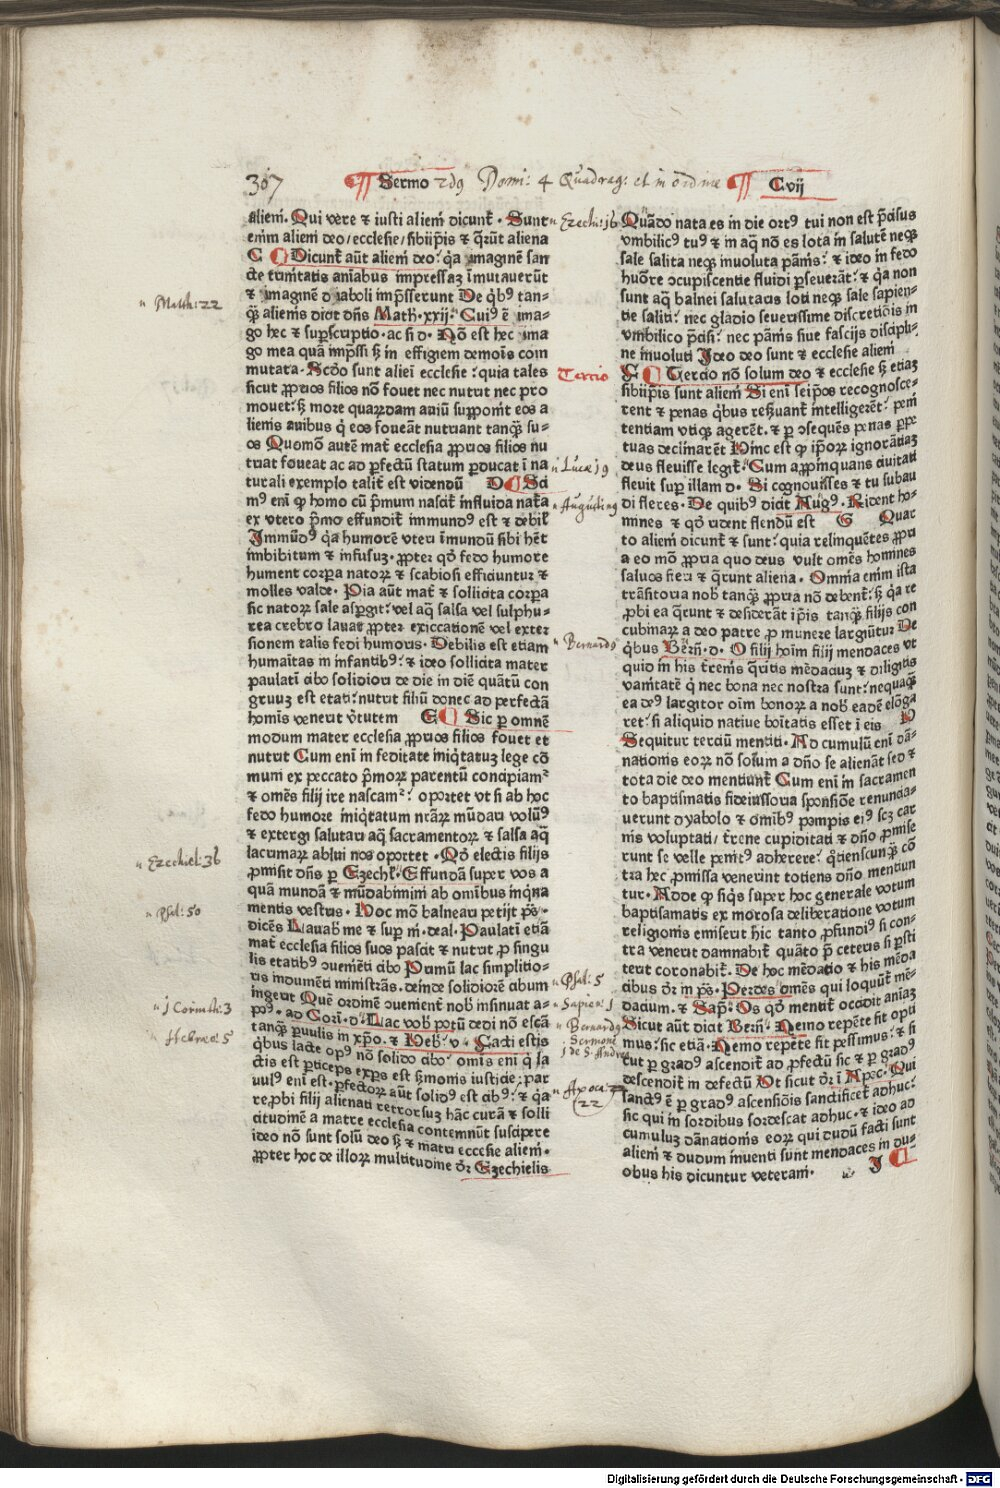 307 ¶ Sermo 2dꝰ Domi: 4 Quadrag: et in ordine ¶ Cvij
alieni. Qui vere ⁊ iusti alieni dicunt̃. Sunt
enim alieni deo/ecclesie/sibiip̃is ⁊ q̃rũt aliena
C Dicunt̃ aũt alieni deo. q̃a imaginẽ san
cte trinitatis aniabus impressaʒ ĩmutauerũt
⁊ imaginẽ diaboli imp̃sserunt De q̃bꝰ tan-
q̃ȝ alienis dicit dñs Math̃.xxij. Cuiꝰ ẽ ima-
go hec ⁊ sup̃scriptio.ac si d. Nõ est hec ima
go mea quã imp̃ssi sȝ in effigiem demõis com
mutata. Scďo sunt alieni ecclesie: quia tales
sicut ꝓprios filios nõ fouet nec nutrit nec pro
mouet: sȝ more quarũdam auiũ supponit eos a
lienis auibus q̃ eos foueãt nutriant tanq̃ȝ su-
os Quomõ autẽ mat̃ ecclesia ꝓprios filios nu
triat foueat ac ad ꝑfectũ statum ꝑducat ĩ na
turali exemplo talit̃ est videndũ D Sci
mꝰ eni ꝙ homo cũ p̃mum nascit̃ influida nat̃a
ex vtero p̃mo effundit̃ immundꝰ est ⁊ debil̃
Immũdꝰ q̃a humorẽ vteri ĩmundũ sibi hẽt
imbibitum ⁊ infusuȝ.ꝓpter qď fedo humore
hument corpora natoꝝ ⁊ scabiosi efficiuntur ⁊
molles valde. Pia aũt mat̃ ⁊ sollicita corpora
sic natoꝝ sale aspergit: vel aq̃ salsa vel sulphu-
rea crebro lauat ꝓpter exiccationẽ vel exter
sionem talis fedi humoris. Debilis est etiam
humaĩtas in infantibꝰ: ⁊ ideo sollicita mater
paulatĩ cibo solidiori de die in diẽ quãtũ con
gruuȝ est etati: nutrit filiũ donec ad perfectã
homĩs venerit v̓tutem E Sic ꝑ omnẽ
modum mater ecclesia ꝓprios filios fouet et
nutrit Cum eni in feditate iniq̃tatuȝ lege cõ
muni ex peccato p̃moꝝ parentũ concipiamꝰ
⁊ omẽs filij ire nascamꝰ: oportet vt si ab hoc
fedo humore iniq̃tatum nr̃aꝝ mũdari volũꝰ
⁊ extergi salutari aq̃ sacramentoꝝ ⁊ salsa aq̃
lacrimaꝝ ablui nos oportet. Qď electis filijs
ꝓmisit dñs ꝑ Ezechĩ. Effundã super vos a
quã mundã ⁊ mũdabimini ab omĩbus inq̃na
mentis vestris. Hoc mõ balneari petijt p̃s.
dicẽs Lauab̃ me ⁊ sup̃ ni.deal. Paulati etiã
mat̃ ecclesia filios suos pascit ⁊ nutrit ꝓ singu
lis etatibꝰ ↄuenieti cibo Primũ lac simplitio-
ris indumẽti ministrãs.deinde solidiorẽ cibum
ingerit Quẽ ordinẽ ↄuenient̃ nob̃ insinuat a-
pꝰ. ad Corĩ.d. Lac vob̃ potũ dedi nõ escã
tanq̃ȝ ꝑuulis in xp̃o.⁊ Heb̃.v. Facti estis
q̃bus lacte opꝰ nõ solido cibo: omis eni q̃ la
ctis est ꝑticeps expers est sȝmonis iusticie: par
uulꝰ eni est.ꝑfectoꝝ aũt solidꝰ est cibꝰ: ⁊ q̃a
re,pbi filij alienati retrorsuȝ hãc curã ⁊ solli
citudinẽ a matre ecclesia contemnũt suscipere
ideo nõ sunt solũ deo sȝ ⁊ matri ecclesie alieni.
ꝓpter hoc de illoꝝ multitudine dr̃ Ezechielis
Quãdo nata es in die ortꝰ tui non est p̃cisus
vmbilicꝰ tuꝰ ⁊ in aq̃ nõ es lota in salutẽ neqȝ
sale salita neqȝ inuoluta pãnis: ⁊ ideo in fedo
huõre ↄcupiscentie fluidi ꝑseuerãt: ⁊ q̃a non
sunt aq̃ balnei salutaris loti neqȝ sale sapien-
tie saliti: nec gladio seuerissime discretiõis in
vmbilico p̃cisi: nec pãnis siue fascijs discipli-
ne inuoluti Ideo deo sunt ⁊ ecclesie alieni
F Tercio nõ solum deo ⁊ ecclesie sȝ etiaȝ
sibiip̃is sunt alieni Si eni seip̃os recognosce-
rent ⁊ penas q̃bus reẞuant̃ intelligerẽt: peni
tentiam vtiqȝ agerẽt.⁊ ꝑ ↄsequẽs penas ꝑpe
tuas declinarẽt Hinc est ꝙ ip̃oꝝ ignorãtiaȝ
deus fleuisse legit̃. Cum aꝓpinquans ciuitati
fleuit sup̃ illam d. Si cognouisses ⁊ tu subau
di fleres. De quibꝰ dicit Augꝰ. Rident ho-
mines ⁊ qď rident flendũ est G Quar
to alieni dicunt̃ ⁊ sunt: quia relinquẽtes ꝓpri
a eo mõ ꝓpria quo deus vult omẽs homines
saluos fieri ⁊ q̃runt aliena. Omnia enim ista
trãsitoria nob̃ tanq̃ȝ ꝓpria nõ debent̃: sȝ q̃a re
ꝓbi ea q̃runt ⁊ desiderãt ip̃is tanq̃ȝ filijs con
cubinaꝝ a deo patre ꝓ munere largiũtur De
q̃bus Berñ.d. O filij hoim filij mendaces vt
quid in his t̃renis q̃ritis mẽdaciuȝ ⁊ diligitis
vanitatẽ q̃ nec bona nec nostra sunt: nequaq̃ȝ
ea deꝰ largitor oim bonoꝝ a nob̃ eadẽ elõga
ret: si aliquid natiue boĩtatis esset ĩ eis H
Sequitur terciũ mentiti. Ad cumulũ eni dã-
nationis eoꝝ nõ solum a dño se alienãt sed ⁊
tota die deo mentiunt̃ Cum eni in sacramen
to baptismatis fideiussoria sponsiõe renuncia-
uerunt dyabolo ⁊ omĩbꝰ pompis eiꝰ scȝ car
nis voluptati/ t̃rene cupiditati ⁊ dño ꝓmise
runt se velle penitꝰ adherere: q̃tienscunq̃ȝ cõ
tra hec ꝓmissa venerint totiens dño mentiun
tur. Adde ꝙ siq̃s super hoc generale votum
baptismatis ex morosa deliberatione votum
religionis emiserit hic tanto ꝓfundiꝰ si con-
tra venerit damnabit̃ quãto p̃ ceteris si p̃sti
terit coronabit̃. De hoc mẽdatio ⁊ his mẽda
cibus dr̃ in p̃s. Perdes omẽs qui loquũt̃ mẽ-
dacium.⁊ Sap̃. Os qď mentit̃ occidit aniaȝ
Sicut aũt dicit Berñ. Nemo repẽte fit opti
mus: sic etiã. Nemo repẽte fit pessimus: ⁊ si
cut ꝑ gradꝰ ascendit̃ ad ꝓfectũ sic ⁊ ꝑ gradꝰ
descendit̃ in defectũ Vt sicut dr̃ ĩ Apoc. Qui
sanctꝰ ẽ ꝑ gradꝰ ascensiõis sanctificet̃ adhuc:
sic qui in sordibus sordescat adhuc.⁊ ideo ad
cumuluȝ dãnationis eoꝝ qui dudũ facti sunt
alieni ⁊ dudum inuenti sunt mendaces in du-
obus his dicuntur veterani. I
" Matth: 22
" Ezechiel: 36
" Psal: 50
" j Corinth: 3
" Hebræo: 5
" Ezech: 16
Tercio
" Lucæ 19
" Augustinꝰ
" Bernardꝰ
" Psal: 5
" Sapien: 1
" Bernardꝰ
Sermone
j de S. Andrea
" Apoca:
22
Digitalisierung gefördert durch die Deutsche Forschungsgemeinschaft - DFG